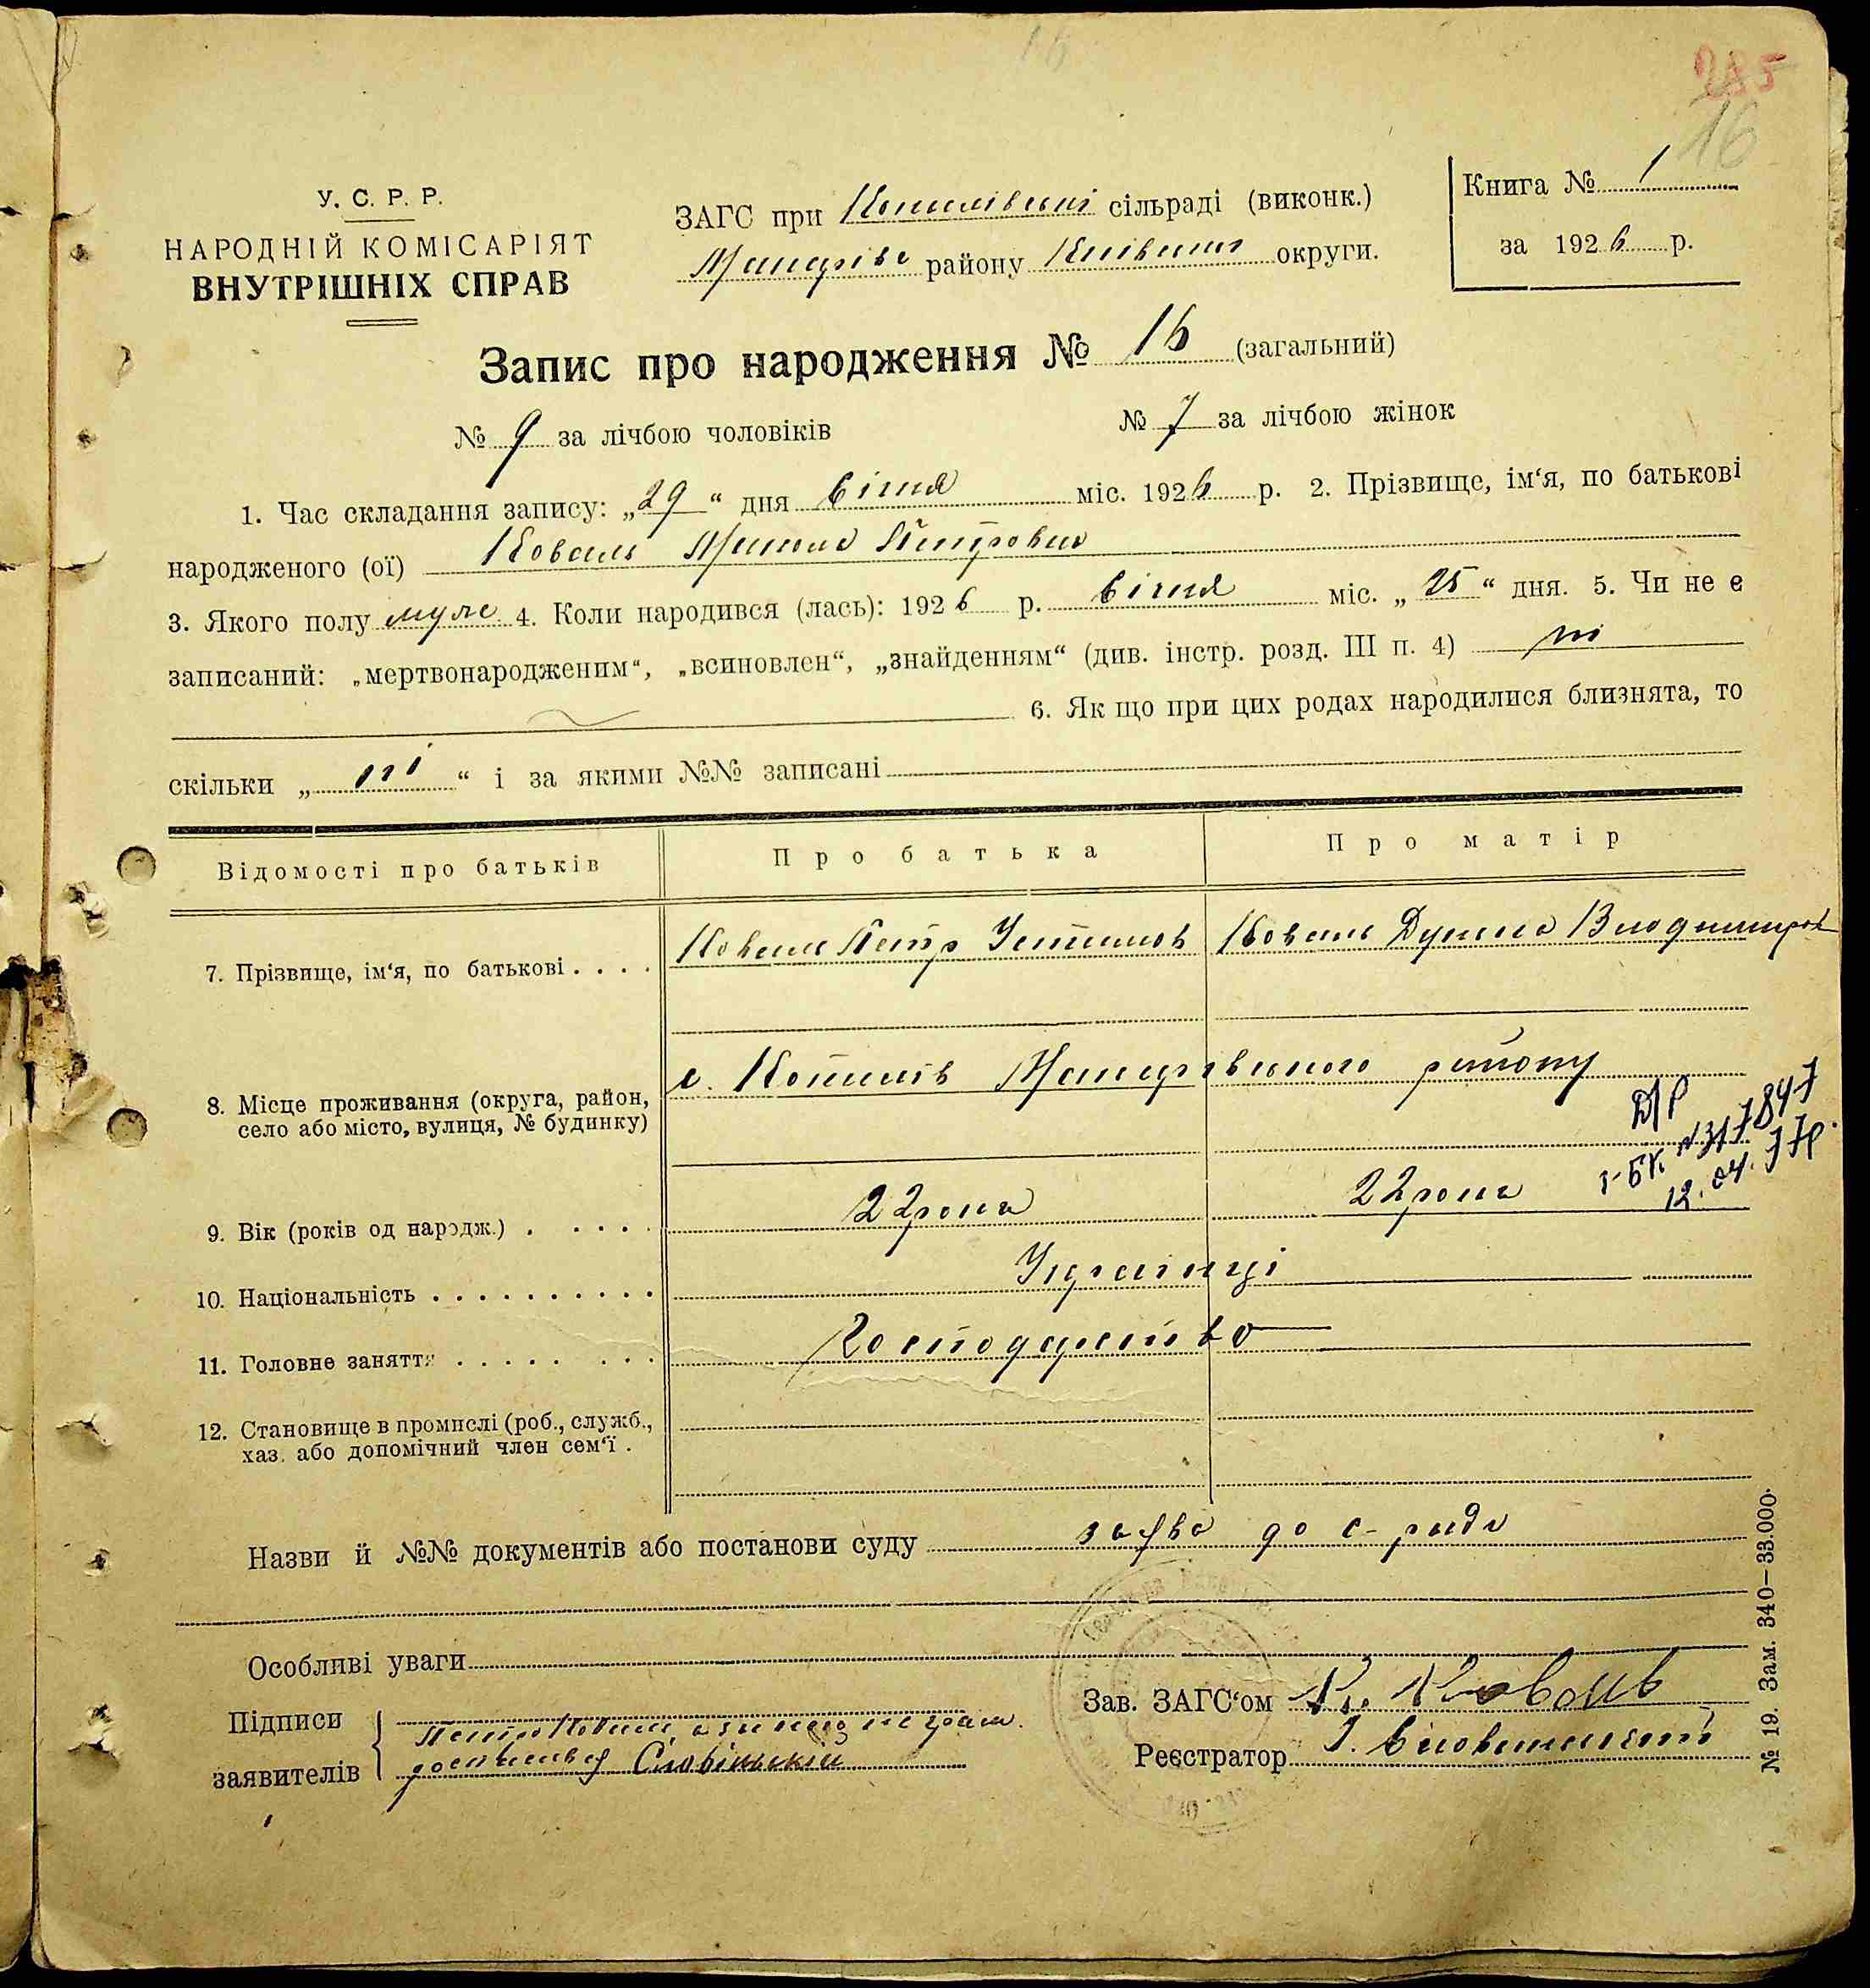 16
285
16
У. С. Р. Р.
НАРОДНІЙ КОМІСАРІЯТ
ВНУТРІШНІХ СПРАВ
ЗАГС при Копилівські сільраді (виконк.)
Макарівс району Київськ округи.
Книга № 1
за 1926 р.
Запис про народження № 16 (загальний)
№ 9 за лічбою чоловіків № 7 за лічбою жінок
1. Час складання запису: „29“ дня Січня міс. 1926 р. 2. Прізвище, ім‘я, по батькові
народженого (ої) Коваль Микола Петрович
3. Якого полу муже 4. Коли народився (лась): 1926 р. Січня міс. „25“ дня. 5. Чи не є
записаний: „мертвонародженим“, „всиновлен“, „знайденням“ (див. інстр. розд. III п. 4) ні
6. Як що при цих родах народилися близнята, то
скільки „ ні “ і за якими №№ записані
Відомості про батьків Про батька Про матір
7. Прізвище, ім‘я, по батькові . . . . Коваль Петр Устимов Коваль Дунька Влодимиров
8. Місце проживання (округа, район,
село або місто, вулиця, № будинку)
с. Копилів Макарівського району
Д/Р
І-БК № 317847
12.04.77р.
9. Вік (років од народж.) . . . . . 22 рока 22 рока
10. Національність . . . . . . . . . . Українці
11. Головне заняття . . . . . . . . Господарство
12. Становище в промислі (роб., служб.,
хаз. або допомічний член сем‘ї .
Назви й №№ документів або постанови суду заява до с-ради
Особливі уваги
Підписи
заявителів
Петро Коваль, а за нього не грам.
Зав. ЗАГС‘ом Коваль
Реєстратор
№ 19. Зам. 340—33.000.